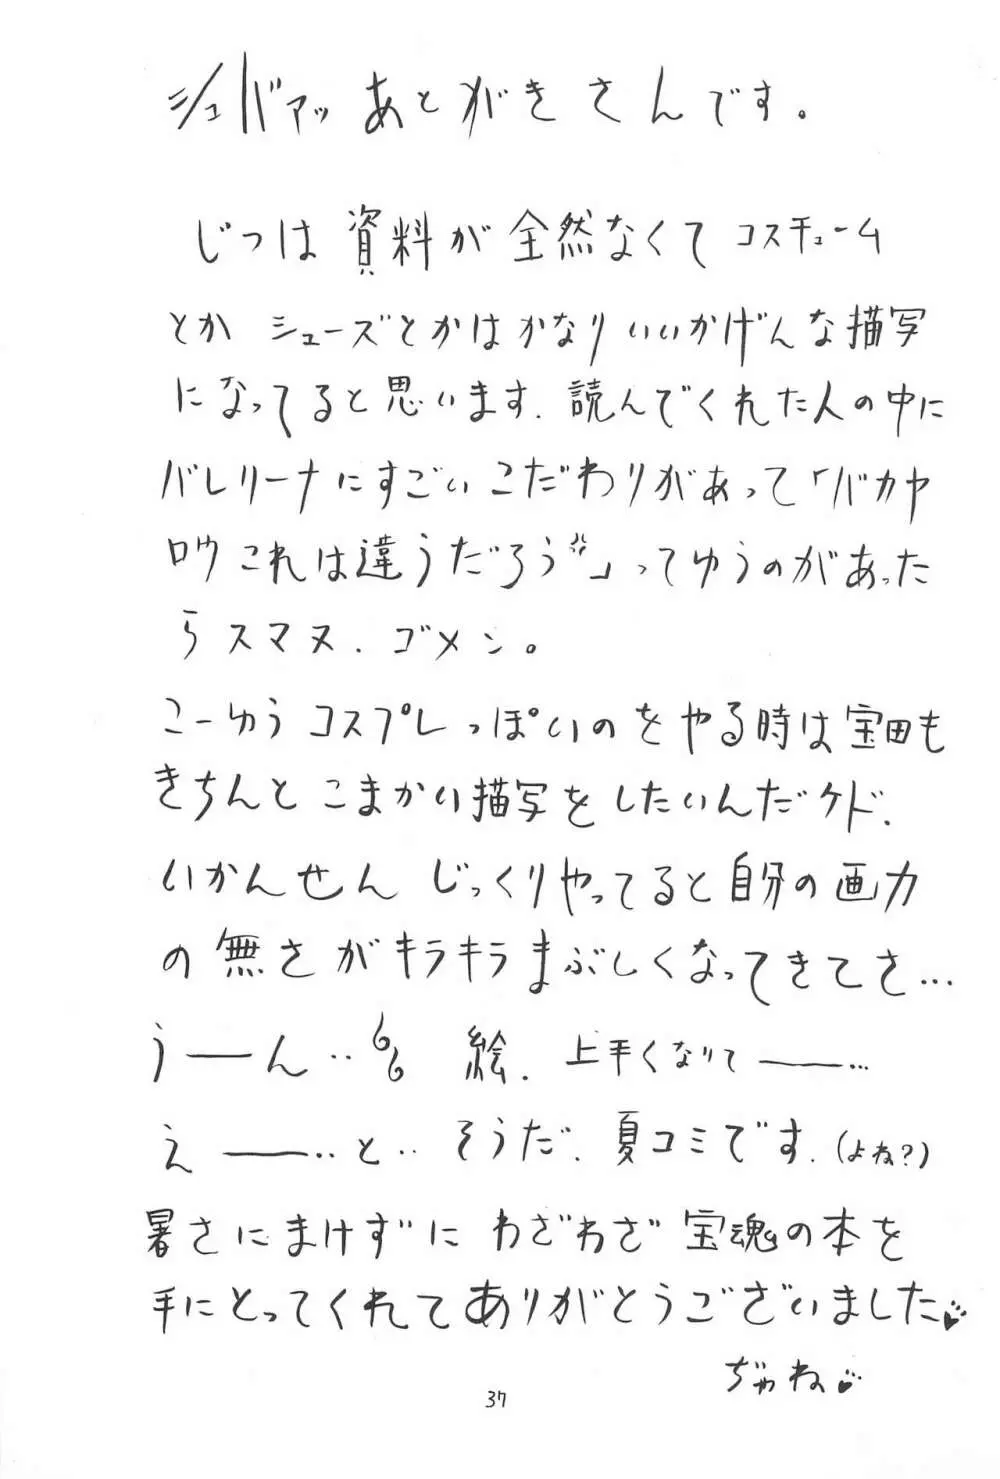 シュバァッ あとがきさんです。
じつは 資料が 全然なくて コスチューム
とか シューズとかは かなりいいかげんな描写
になってると思います. 読んでくれた人の中に
バレリーナにすごいこだわりがあって「バカヤ
ロウ これは違うだろう」ってゆうのがあった
らスマヌ. ゴメン。
こーゆう コスプレっぽいのをやる時は宝田も
きちんと こまかい描写をしたいんだケド.
いかんせん じっくりやってると自分の画力
の無さがキラキラまぶしくなってきてさ…
うーん‥ 絵. 上手くなりてー…
えー‥と‥ そうだ. 夏コミです.(よね?)
暑さにまけずに わざわざ 宝魂の本を
手にとってくれてありがとうございました
ぢゃね
37